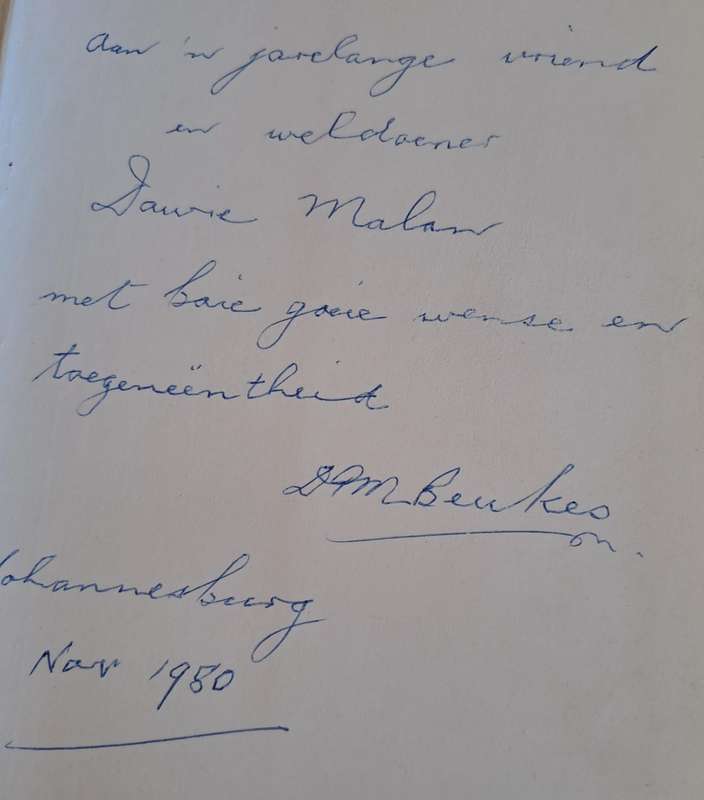 Aan 'n jarelange vriend
en weldoener
Dawie Malan
met baie goeie wense en
toegeneëntheid
DPM Beukes
Johannesburg
Nov 1980